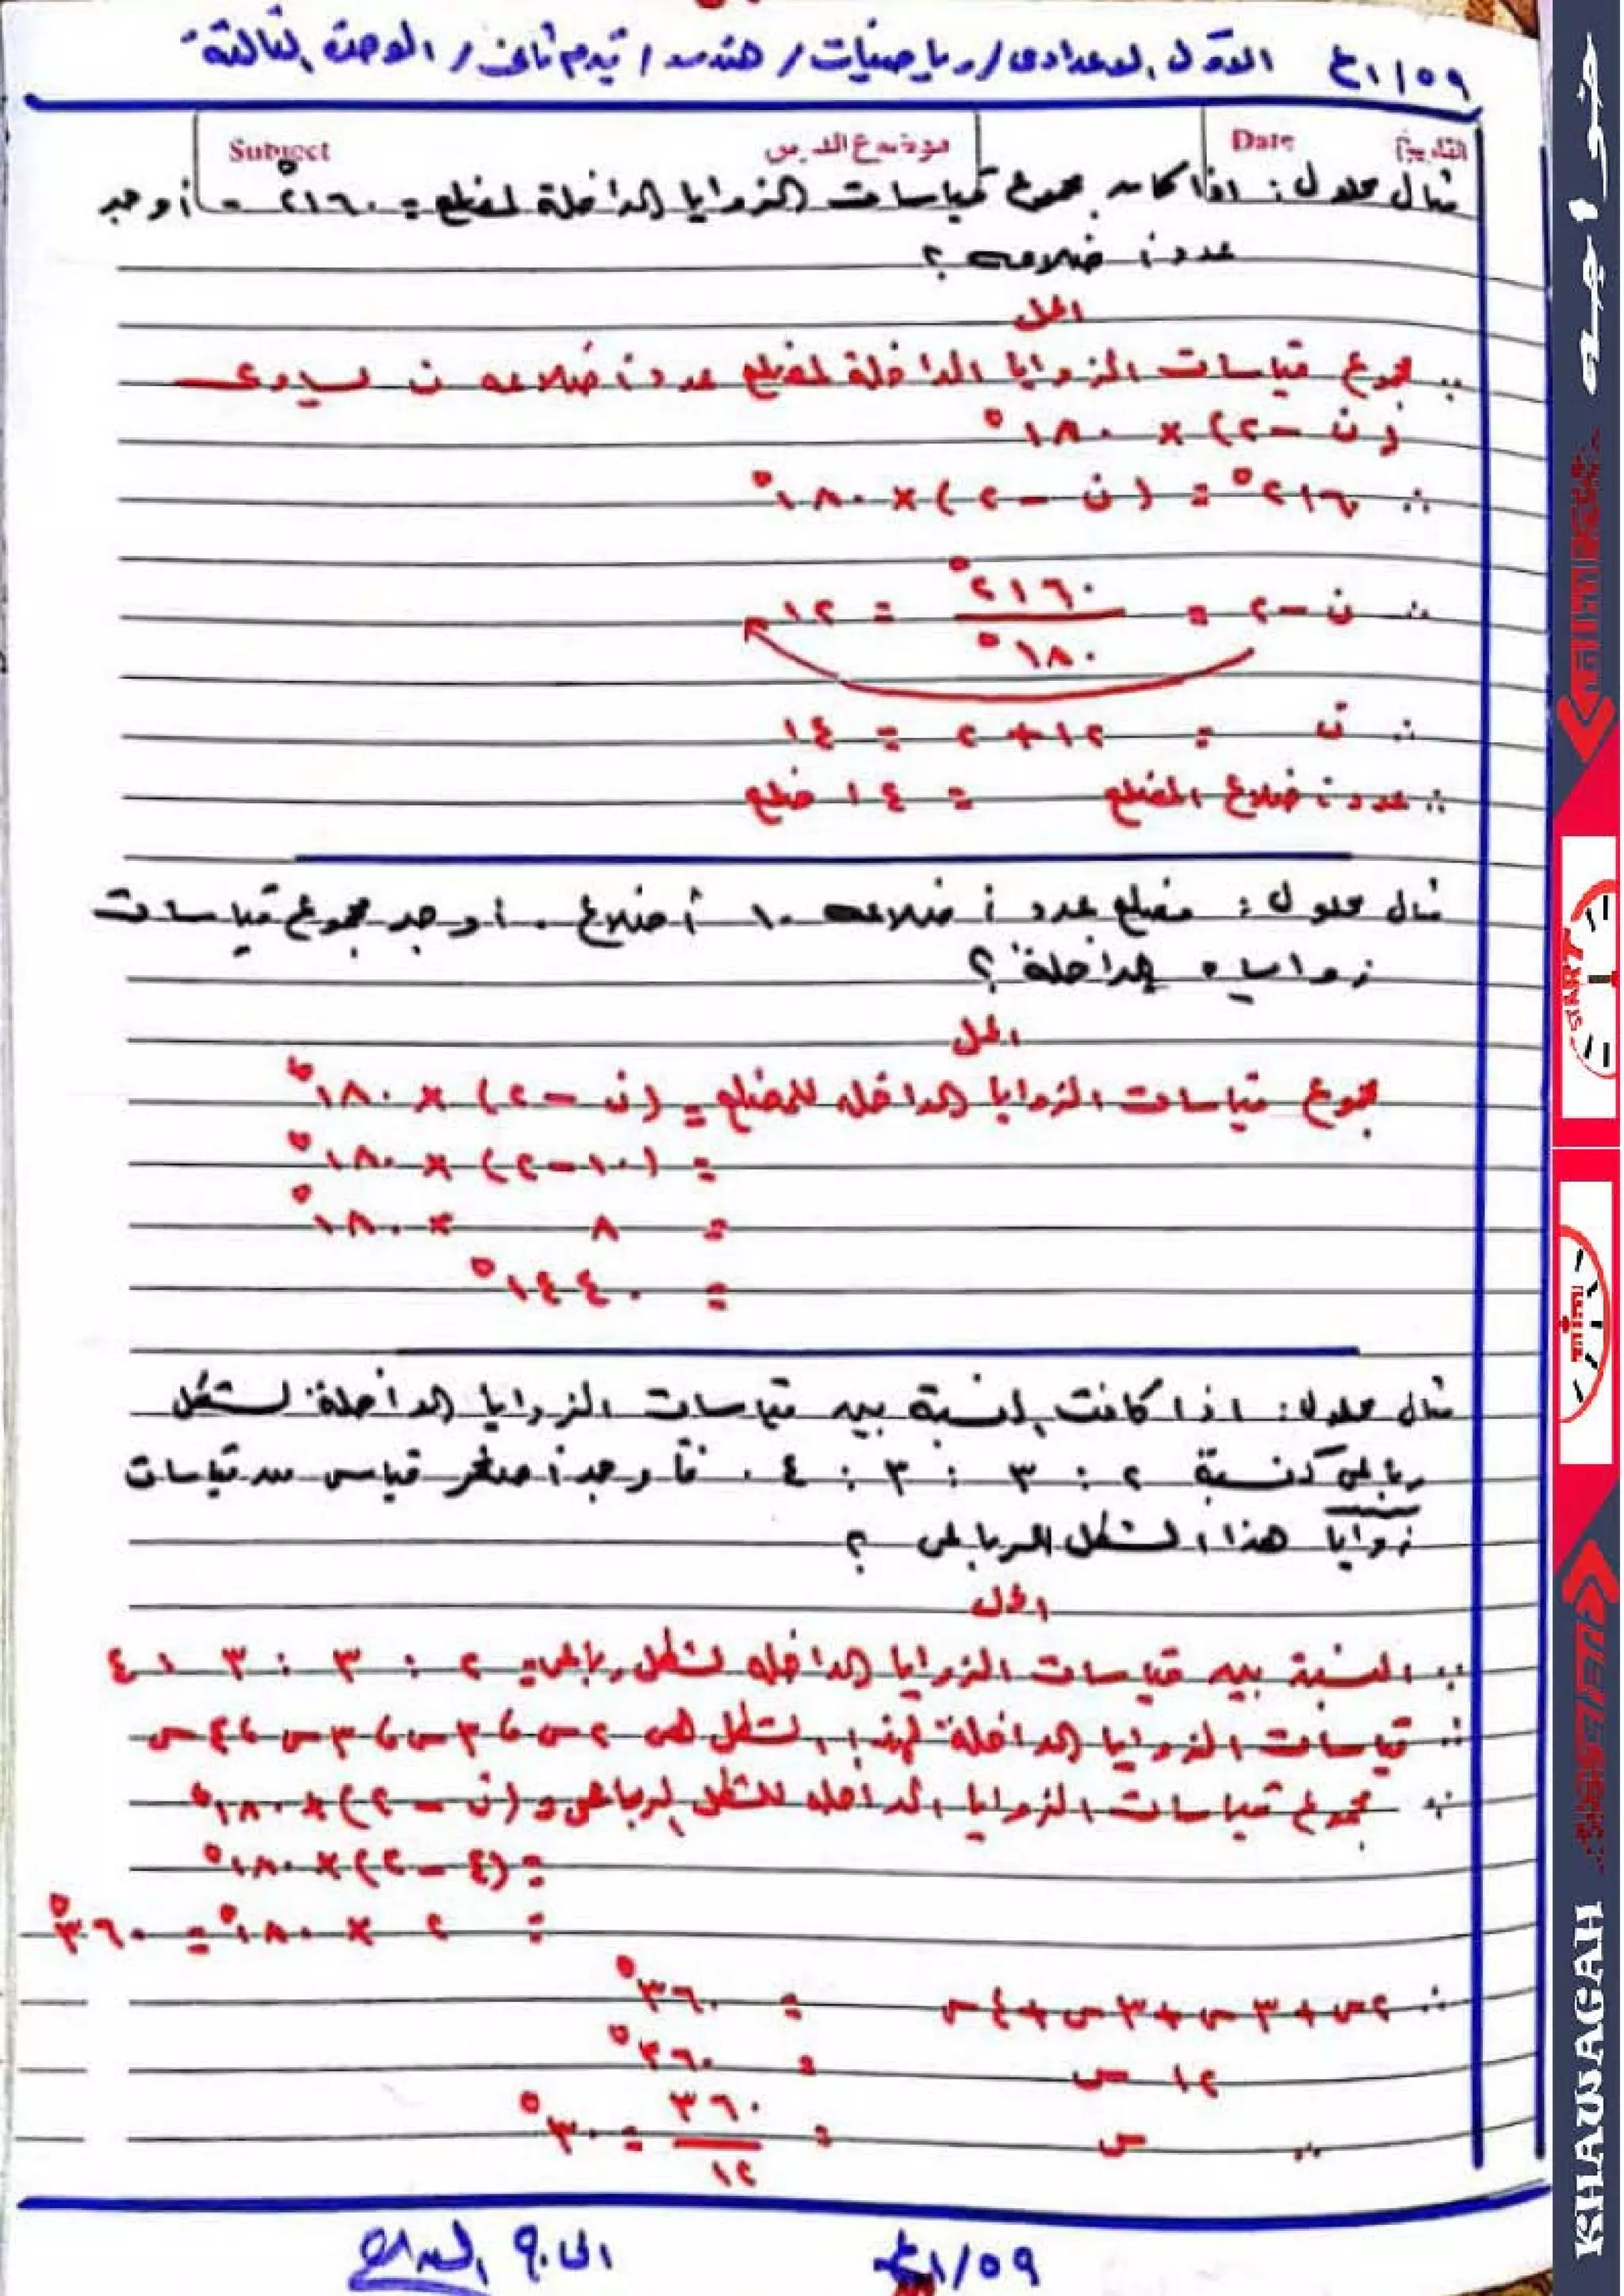 ٤١/٥٩ الاول الاعدادى/رياضيات/هندسه/ تيرم ثانى/ الوحدة الثالثة
Subject موضوع الدرس Date التاريخ
مثال محلول: اذا كان مجموع قياسات الزوايا الداخلة لمضلع = ٢١٦٠° - أوجد
عدد أضلاعه ؟
الحل
∵ مجموع قياسات الزوايا الداخلة لمضلع عدد أضلاعه ن يساوى
(ن - ٢) × ١٨٠°
∴ ٢١٦٠° = (ن - ٢) × ١٨٠°
∴ ن - ٢ = ٢١٦٠° / ١٨٠° = ١٢
∴ ن = ١٢ + ٢ = ١٤
∴ عدد أضلاع المضلع = ١٤ ضلع
مثال محلول: مضلع عدد أضلاعه ١٠ أضلاع . أوجد مجموع قياسات
زواياه الداخلة ؟
الحل
مجموع قياسات الزوايا الداخله للمضلع = (ن - ٢) × ١٨٠°
= (١٠ - ٢) × ١٨٠°
= ٨ × ١٨٠°
= ١٤٤٠°
مثال محلول: اذا كانت النسبة بين قياسات الزوايا الداخلة لشكل
رباعى كنسبة ٢ : ٣ : ٣ : ٤ . فأوجد أصغر قياس من قياسات
زوايا هذا الشكل الرباعى ؟
الحل
∵ النسبة بين قياسات الزوايا الداخله لشكل رباعى = ٢ : ٣ : ٣ : ٤
∴ قياسات الزوايا الداخلة لهذا الشكل هى ٢س ، ٣س ، ٣س ، ٤س
∵ مجموع قياسات الزوايا الداخله للشكل الرباعى = (ن - ٢) × ١٨٠°
= (٤ - ٢) × ١٨٠°
= ٢ × ١٨٠° = ٣٦٠°
∴ ٢س + ٣س + ٣س + ٤س = ٣٦٠°
١٢ س = ٣٦٠°
∴ س = ٣٦٠ / ١٢ = ٣٠°
٤١/٥٩
خواجه
START
TIME
KHAWAGAH